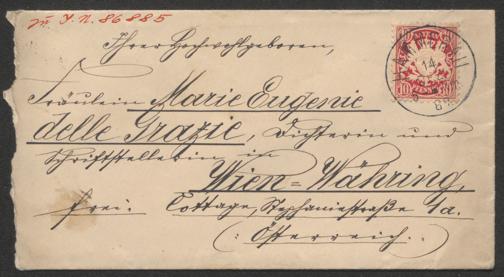 zu I.N. 86885
Ihrer Hochwohlgeboren,
Fräulein Marie Eugenie
delle Grazie, Dichterin und
Schriftstellerin in
Wien=Währing,
frei: Cottage, Stephaniestraße 1a.
(: Österreich :)
10
14